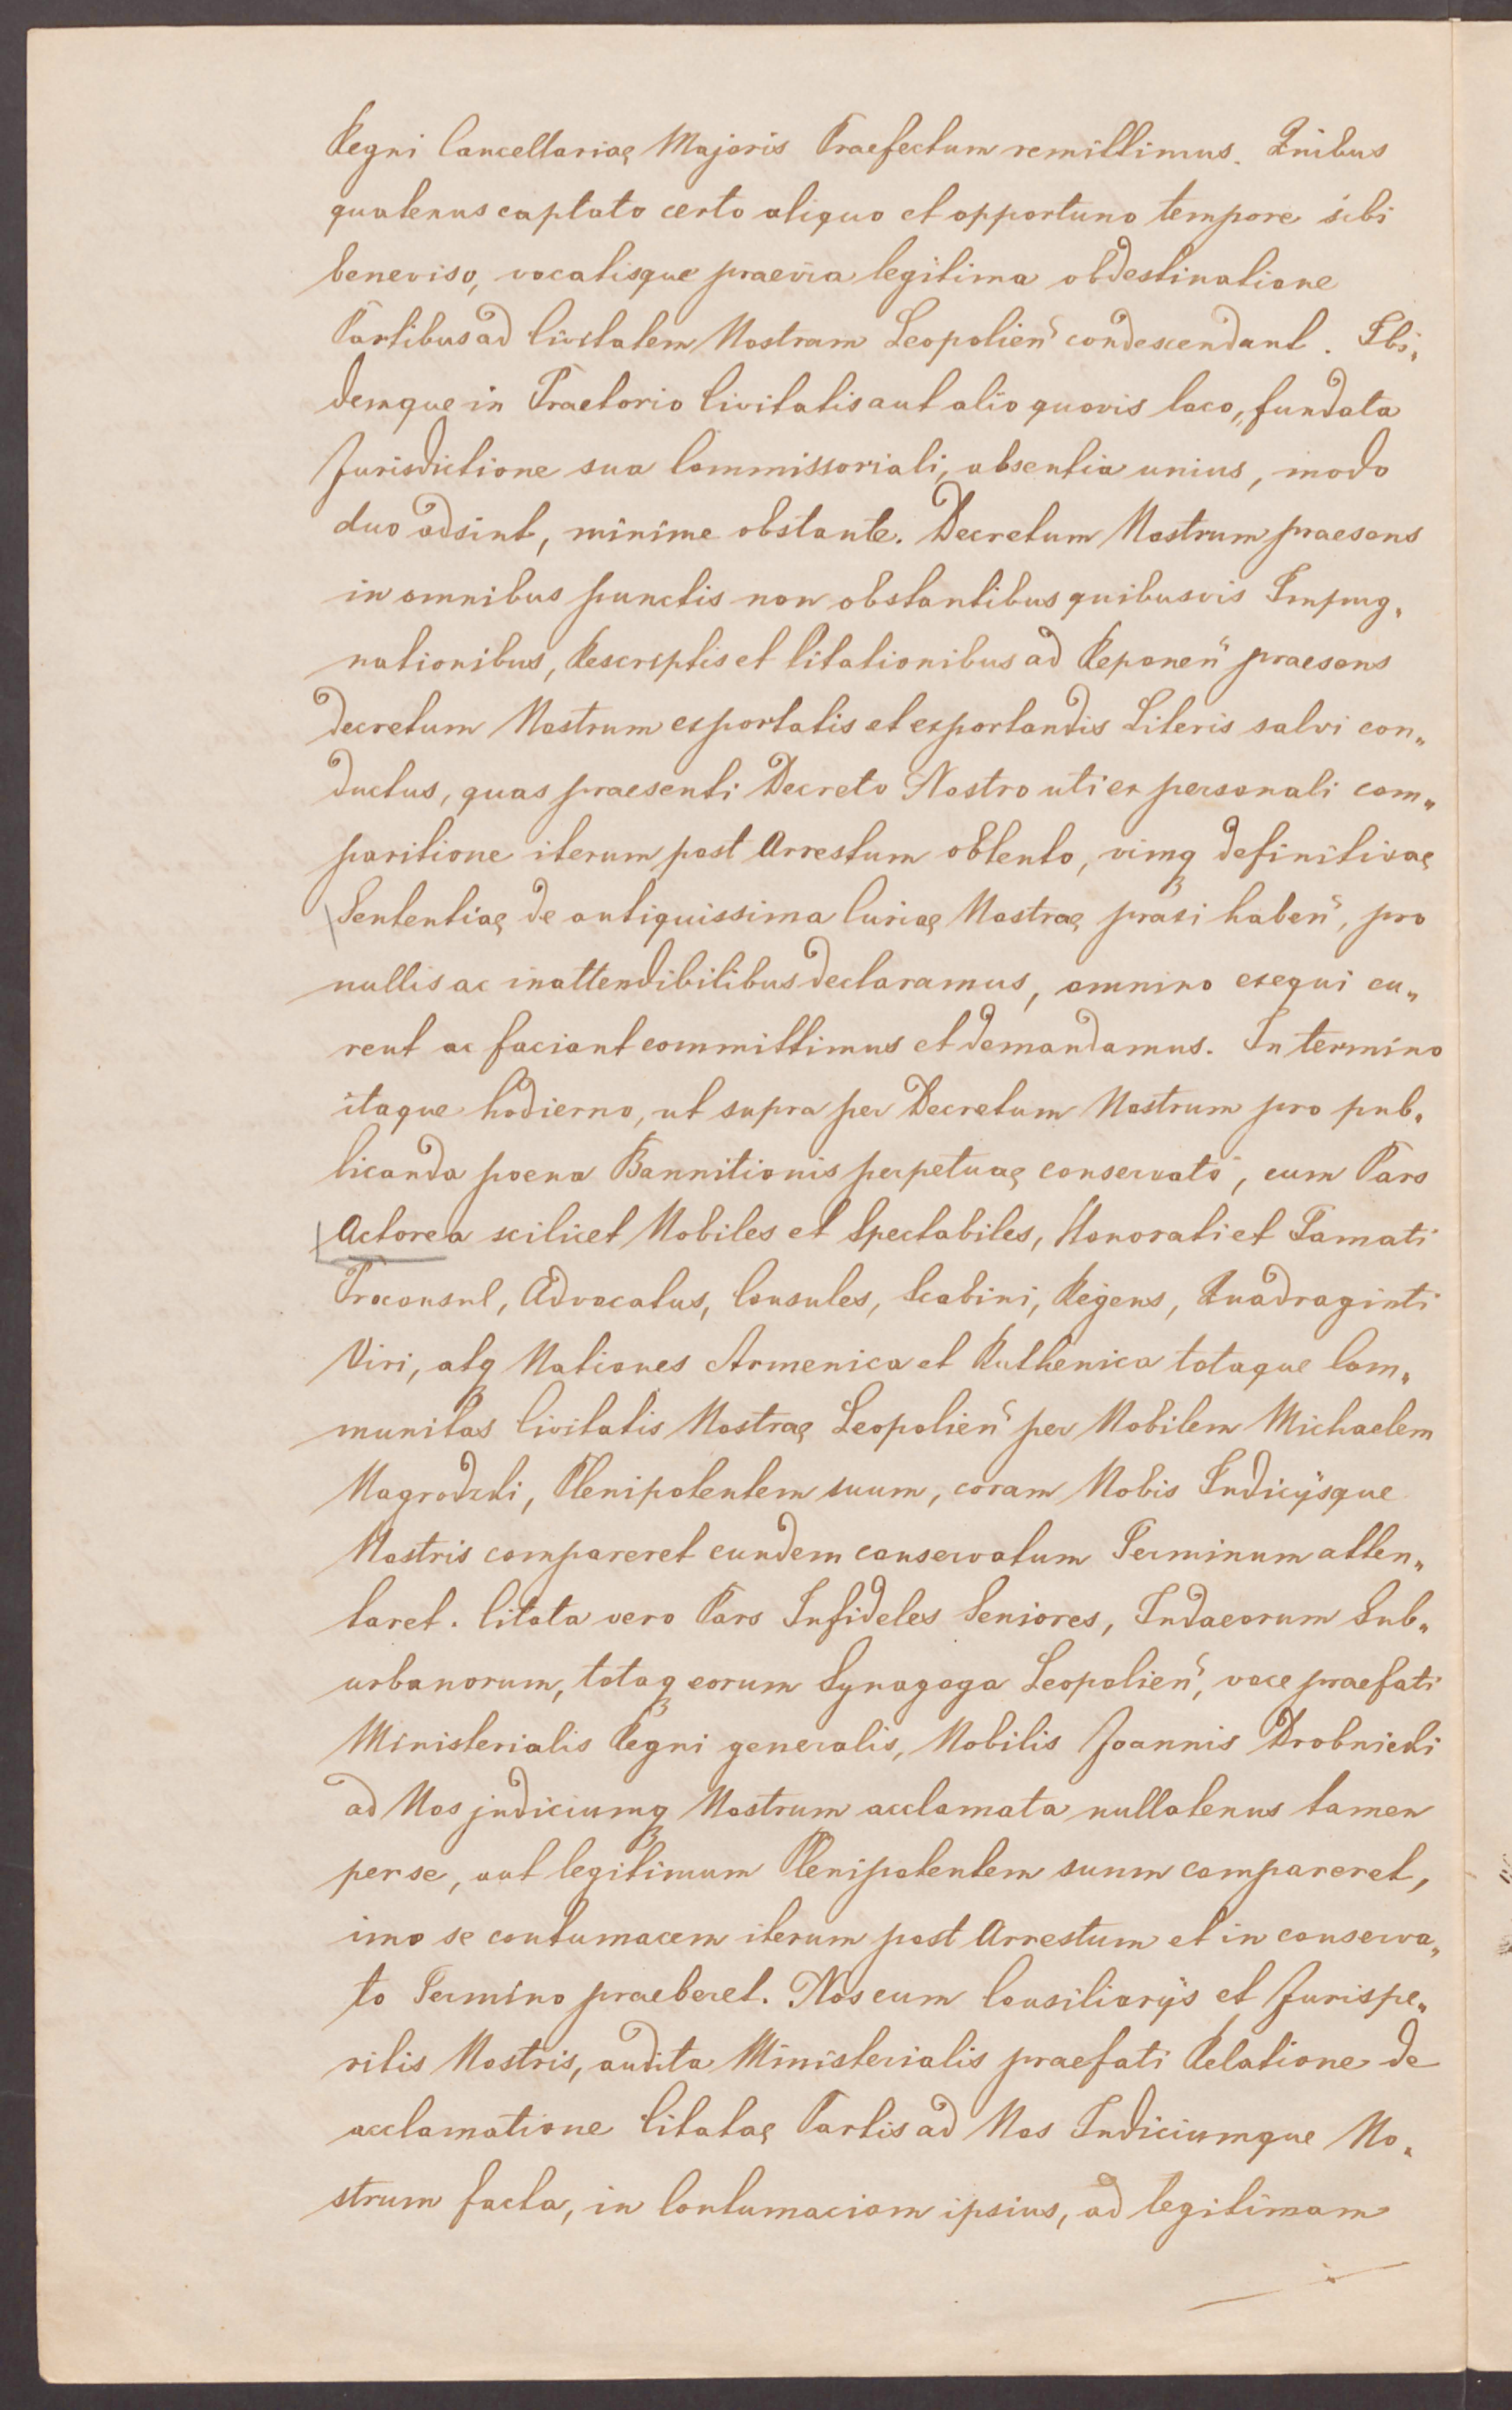 Regni Cancellariae Majoris Praefectum remittimus. Quibus
quatenus captato certo aliquo et opportuno tempore sibi
beneviso, vocatisque praevia legitima obdestinatione
Partibus ad Civitatem Nostram Leopolien̄ condescendant. Ibi„
demque in Praetorio Civitatis aut alio quovis loco, fundata
Jurisdictione sua Commissoriali, absentia unius, modo
duo adsint, minime obstante. Decretum Nostrum praesens
in omnibus punctis non obstantibus quibusvis Impug„
nationibus, Rescriptis et Citationibus ad Reponen̄ praesens
decretum Nostrum exportatis et exportandis Literis salvi con„
ductus, quas praesenti Decreto Nostro uti ex personali com„
paritione iterum post Arrestum obtento, vimq definitivae
Sententiae de antiquissima Curiae Nostrae praxi haben̄, pro
nullis ac inattendibilibus declaramus, omnino exequi cu„
rent ac faciant committimus et demandamus. In termino
itaque hodierno, ut supra per Decretum Nostrum pro pub„
licanda poena Bannitionis perpetuae conservato, cum Pars
Actorea scilicet Nobiles et Spectabiles, Honorati et Famati
Proconsul, Advocatus, Consules, Scabini, Regens, Quadraginti
Viri, atq Nationes Armenica et Ruthenica totaque Com„
munitas Civitatis Nostrae Leopolien̄ per Nobilem Michaelem
Nagrodzki, Plenipotentem suum, coram Nobis Judicijsque
Nostris compareret eundem conservatum Terminum atten„
taret. Citata vero Pars Infideles Seniores, Judaeorum Sub„
urbanorum, totaq eorum Synagoga Leopolien̄, voce praefati
Ministerialis Regni generalis, Nobilis Joannis Drobnicki
ad Nos judiciumq Nostrum acclamata nullatenus tamen
per se, aut legitimum Plenipotentem suum compareret,
imo se contumacem iterum post Arrestum et in conserva„
to Termino praeberet. Nos cum Consiliarijs et Jurispe„
ritis Nostris, audita Ministerialis praefati Relatione de
acclamatione Citatae Partis ad Nos Judiciumque No„
strum facta, in Contumaciam ipsius, ad legitimam